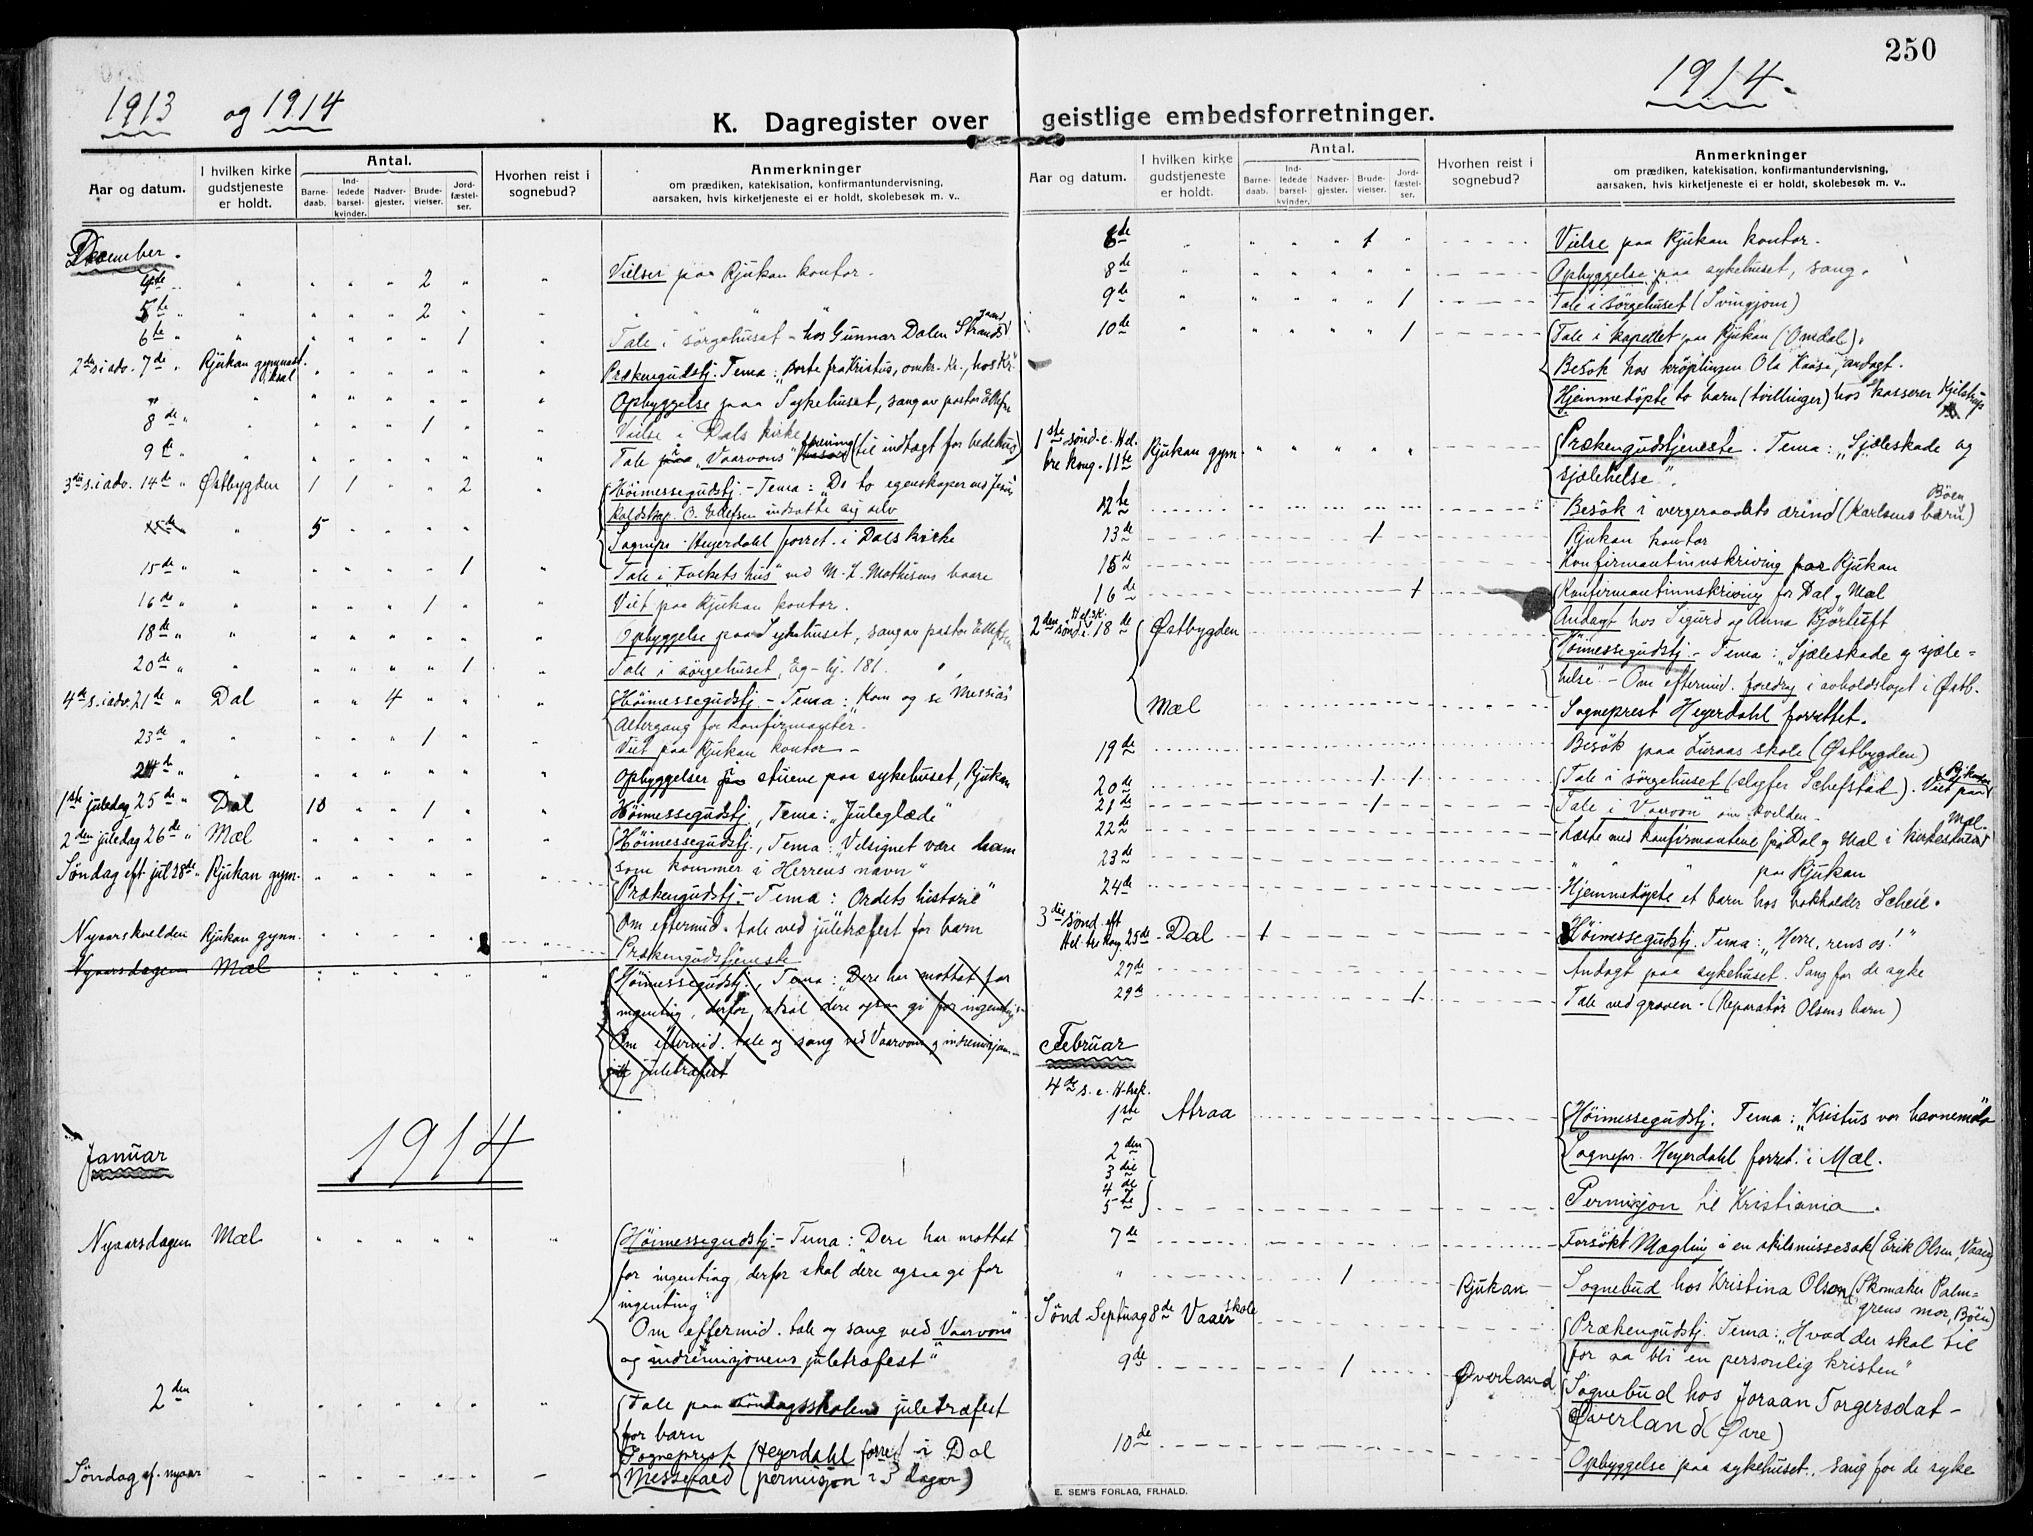 250
1913 og 1914
1914.
K. Dagregister over geistlige embedsforretninger.
Aar og datum.
I hvilken kirke gudstjeneste er holdt.
Antal.
Barnedaab.
Indledede barselkvinder.
Nadvergjester.
Brudevielser.
Jordfæstelser.
Hvorhen reist i sognebud?
Anmerkninger
om prædiken, katekisation, konfirmantundervisning,
aarsaken, hvis kirketjeneste ei er holdt, skolebesøk m. v..
December.
4de " " " " " 2 " " Vielser paa Rjukan kontor.
5te " " " " " 2 " " " " "
6te " " " " " " 1 " Tale i sørgehuset - hos Gunnar Dalen Strand
2den s. i adv. 7de " Rjukan gymnast. sal " " " " " " Prækengudstj. Tema: "Borte fra Kristus, omkr. Kr., hos Kr."
" " " " " " " " Opbyggelse paa Sykehuset, sang av pastor Ellefsen
8de " " " " " 1 " " Vielse i Dals kirke
9de " " " " " " " " Tale i "Vaarvons" forening (til indtægt for bedehus)
3die s. i adv. 14de " Østbygden 1 1 " " 2 " Høimessegudstj. - Tema: "De to egenskaper ved Jesus
Ellefsen indsatte sig selv
15de " 5 " " " " Sognepr. Heyerdahl forret. i Dals kirke
15de " " " " " " 1 " Tale i "Folkets hus" ved M. L. Mathisens baare
16de " " " " " 1 " " Viet paa Rjukan kontor.
18de " " " " " " " " Opbyggelse paa Sykehuset, sang av pastor Ellefsen
20de " " " " " " 1 " Tale i sørgehuset, Eg-bj. 181.
4de s. i adv. 21de " Dal " " 4 " " " Høimessegudstj. - Tema: "Kom og se Messias"
Altergang for konfirmanter.
23de " " " " " 1 " " Viet paa Rjukan kontor -
24de " " " " " " " " Opbyggelser i stuene paa sykehuset, Rjukan
1ste juledag 25de " Dal 10 " " 1 " " Høimessegudstj., Tema: "Juleglæde"
2den juledag 26de " Mæl " " " " " " Høimessegudstj., Tema: "Velsignet være ham
som kommer i Herrens navn"
Søndag eft jul 28de " Rjukan gym. " " " " " Prækengudstj. - Tema: Ordets historie"
Om eftermid. tale ved juletræfest for barn
Nyaarskvelden Rjukan gymn. " " " " " " Prækengudstjeneste
Nyaarsdagen Mæl " " " " " " Høimessegudstj., Tema: "Dere har mottat for
ingenting, derfor skal dere ogsaa gi for ingenting"
Om eftermid. tale og sang ved Vaarvons og indremisjonens
juletræfest
1914
Januar
Nyaarsdagen Mæl " " " " " " Høimessegudstj. - Tema: "Dere har mottat
for ingenting, derfor skal dere ogsaa gi for
ingenting"
Om eftermid. tale og sang ved Vaarvons"
og indremisjonens juletræfest"
2den " " " " " " " Tale paa søndagsskolens juletræfest
for barn
Sogneprest Heyerdahl forret i Dal
Søndag ef. nyaar - - - - - - - Messefald (permisjon 2-3 dager)
Aar og datum.
I hvilken kirke gudstjeneste er holdt.
Antal.
Barnedaab.
Indledede barselkvinder.
Nadvergjester.
Brudevielser.
Jordfæstelser.
Hvorhen reist i sognebud?
Anmerkninger
om prædiken, katekisation, konfirmantundervisning,
aarsaken, hvis kirketjeneste ei er holdt, skolebesøk m. v..
6de " " " " 1 " Vielse paa Rjukan kontor.
8de " " " " " " Opbyggelse paa sykehuset, sang.
9de " " " " " 1 Tale i sørgehuset (Svingjom)
10de " " " " " 1 Tale i kapellet paa Rjukan (Omdal).
Besøk hos krøplingen Ola Kaasa, andagt.
Hjemmetøpte to barn (tvillinger) hos kasserer Kjelstrup
1ste sønd. e. Hel. tre kong. 11te Rjukan gym. " " " " " Prækengudstjeneste. Tema: "Sjæleskade og
sjælehelse".
12te Besøk i vergeraadets ærind (Karlsens barn) Bøen
13de 1 Rjukan kontor
15de Konfirmantinnskriving for Rjukan
16de 1 Konfirmantinnskriving for Dal og Mæl
Andagt hos Sigurd og Anna Bjørtuft
2den sønd. e. Hel. 3 K. 18de Østbygden Høimessegudstj. - Tema: "Sjæleskade og sjæle-
helse" - Om eftermid. foredrag i avholdslaget i Østb.
Mæl Sogneprest Heyerdahl forrettet.
19de Besøk paa Luraas skole (Østbygden)
20de 1 1 Tale i sørgehuset (slagter Schefstad). Viet paa Rjukan
21de 1 Tale i Vaarvon" om kvelden.
22de Læste med konfirmantene fra Dal og Mæl i kirkestuen Mæl.
23de " " " paa Rjukan
24de Hjemmetøpte et barn hos bokholder Scheie.
3die sønd. eft Hel. tre kong 25de Dal 1 Høimessegudstj. Tema: "Herre, rens os!"
27de Andagt paa sykehuset. Sang for de syke
29de 1 Tale ved graven - (Reparatør Olsens barn)
Februar
4de s. e. H. trek.
1ste Atraa Høimessegudstj. Tema: "Kristus vor havnemaal
Sognepr. Heyerdahl forret. i Mæl.
2den
3die
4de
5te
Permisjon til Kristiania.
7de Forsøkt Mægling i en skilsmissesak (Erik Olsen, Vaaer)
" 1 Rjukan Sognebud hos Kristina Olsen (Skomaker Palm-
grens mor, Bøen)
Sønd Septuag 8de Vaaer skole Prækengudstj. Tema: "Hvad der skal til
for aa bli en personlig kristen"
9de 1 Øverland Sognebud hos Joraan Torgersdat-
Øverland (Øvre)
10de Opbyggelse paa sykehuset, sang for de syke
E. SEM'S FORLAG, FR.HALD.